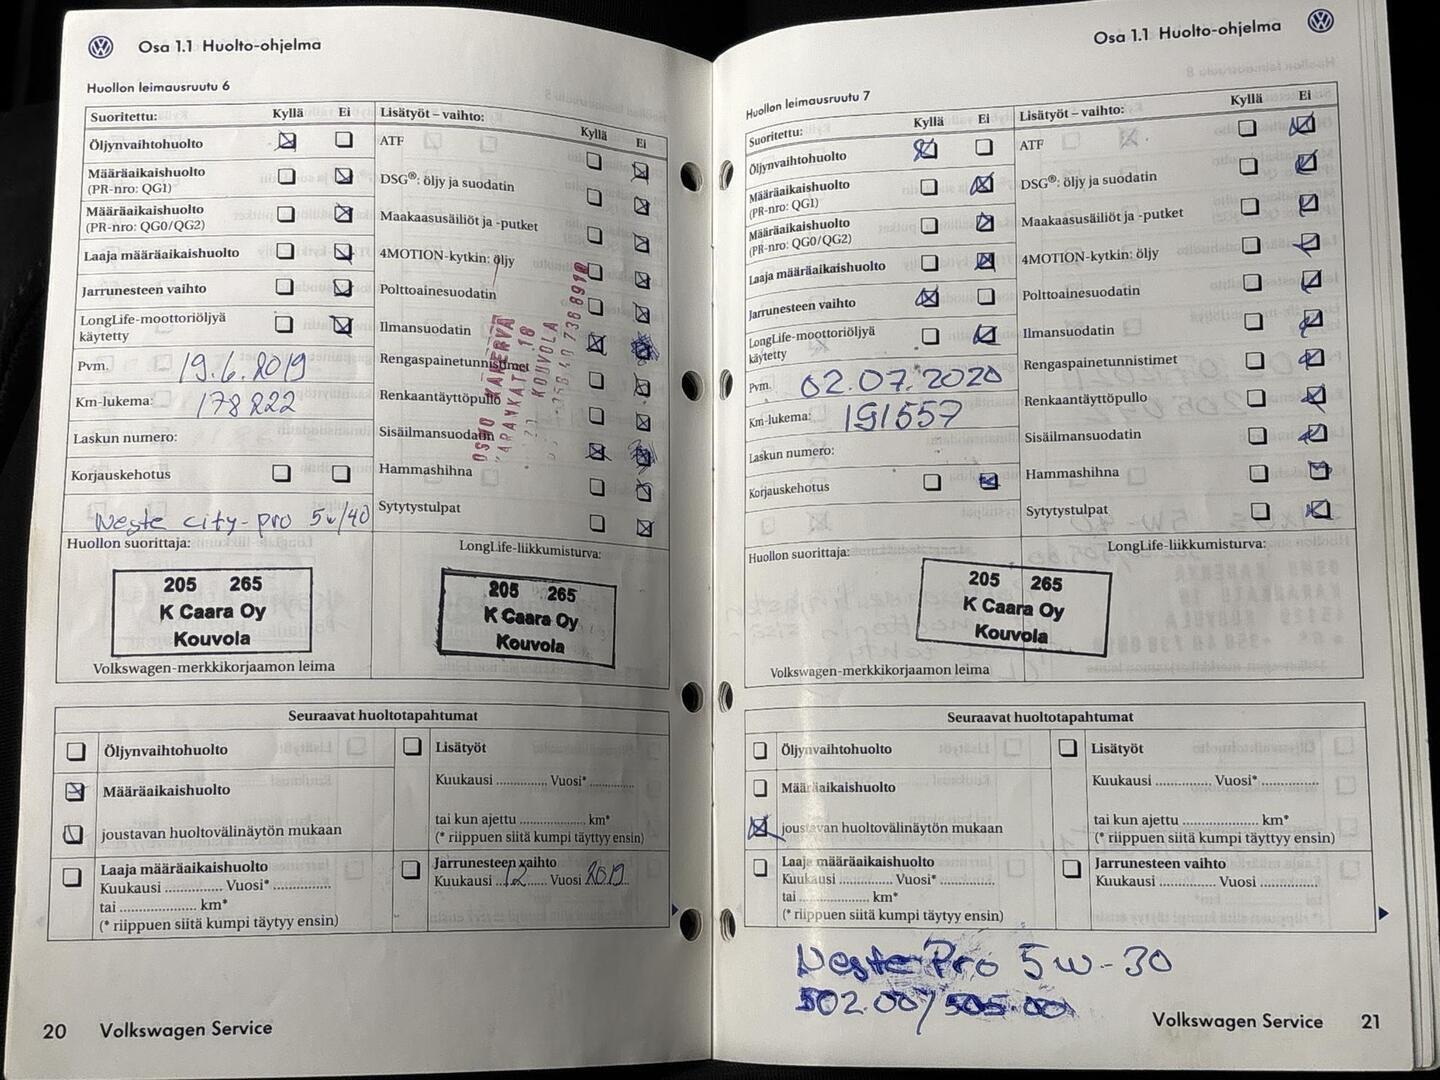 Osa 1.1 Huolto-ohjelma
Huollon leimausruutu 6
Suoritettu: Kyllä Ei
Öljynvaihtohuolto
Määräaikaishuolto
(PR-nro: QG1)
Määräaikaishuolto
(PR-nro: QG0/QG2)
Laaja määräaikaishuolto
Jarrunesteen vaihto
LongLife-moottoriöljyä
käytetty
Pvm. 19.6.2019
Km-lukema: 178222
Laskun numero:
Korjauskehotus
Neste city-pro 5w/40
Lisätyöt – vaihto: Kyllä Ei
ATF
DSG®: öljy ja suodatin
Maakaasusäiliöt ja -putket
4MOTION-kytkin: öljy
Polttoainesuodatin
Ilmansuodatin
Rengaspainetunnistimet
Renkaantäyttöpullo
Sisäilmansuodatin
Hammashihna
Sytytystulpat
KOUVOLA
Huollon suorittaja:
205 265
K Caara Oy
Kouvola
Volkswagen-merkkikorjaamon leima
LongLife-liikkumisturva:
205 265
K Caara Oy
Kouvola
Seuraavat huoltotapahtumat
Öljynvaihtohuolto
Määräaikaishuolto
joustavan huoltovälinäytön mukaan
Laaja määräaikaishuolto
Kuukausi ............ Vuosi* ............
tai .................... km*
(* riippuen siitä kumpi täytyy ensin)
Lisätyöt
Kuukausi ............ Vuosi* ............
tai kun ajettu ................. km*
(* riippuen siitä kumpi täyttyy ensin)
Jarrunesteen vaihto
Kuukausi ...12...... Vuosi 2019..
20 Volkswagen Service
Osa 1.1 Huolto-ohjelma
Huollon leimausruutu 7
Suoritettu: Kyllä Ei
Öljynvaihtohuolto
Määräaikaishuolto
(PR-nro: QG1)
Määräaikaishuolto
(PR-nro: QG0/QG2)
Laaja määräaikaishuolto
Jarrunesteen vaihto
LongLife-moottoriöljyä
käytetty
Pvm. 02.07.2020
Km-lukema: 191557
Laskun numero:
Korjauskehotus
Lisätyöt – vaihto: Kyllä Ei
ATF
DSG®: öljy ja suodatin
Maakaasusäiliöt ja -putket
4MOTION-kytkin: öljy
Polttoainesuodatin
Ilmansuodatin
Rengaspainetunnistimet
Renkaantäyttöpullo
Sisäilmansuodatin
Hammashihna
Sytytystulpat
Huollon suorittaja:
205 265
K Caara Oy
Kouvola
Volkswagen-merkkikorjaamon leima
LongLife-liikkumisturva:
Seuraavat huoltotapahtumat
Öljynvaihtohuolto
Määräaikaishuolto
joustavan huoltovälinäytön mukaan
Laaja määräaikaishuolto
Kuukausi ............ Vuosi* ............
tai .................... km*
(* riippuen siitä kumpi täytyy ensin)
Lisätyöt
Kuukausi ............ Vuosi* ............
tai kun ajettu ................. km*
(* riippuen siitä kumpi täyttyy ensin)
Jarrunesteen vaihto
Kuukausi ............ Vuosi ............
Neste Pro 5w-30
502.00/505.00
Volkswagen Service 21